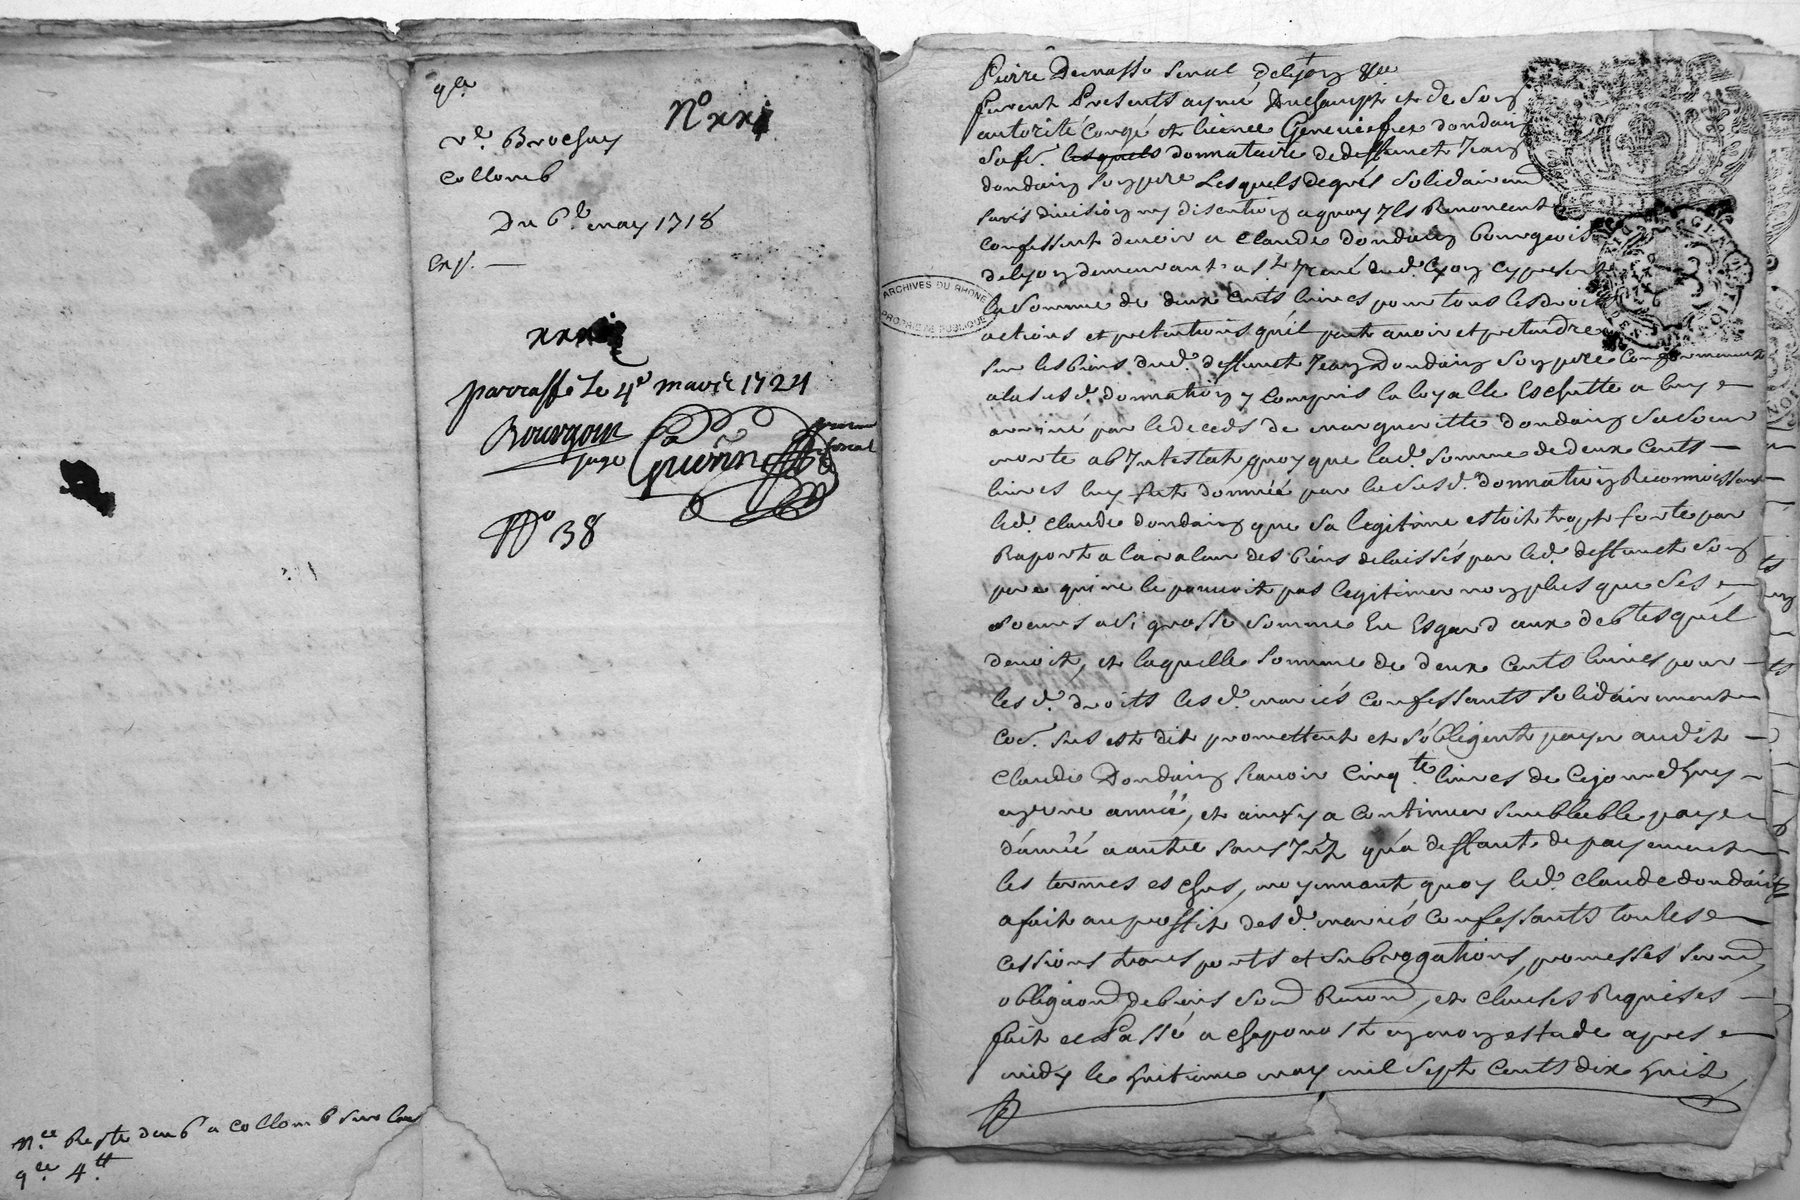 qle
N° xxj
Vte Brochay
Collomb
Du 6e may 1718
Exp.
parraffé Le 4e mars 1724
Bourgoin
juge
Guerin
fiscal
N° 38
Nce Reste deu 6 a Collomb sur la
qce 4tt
ARCHIVES DU RHONE
PROPRIETE PUBLIQUE
GENERALITE
Pierre
furent Presents aymé Duchampt et de son
autorité congé et licence Geneviefve dondain
sa fe. lesquels donnataire de deffunct Jean
dondain son pere Lesquels de grés solidairemt
sans division ny disention a quoy Ils Renoncent
confessent devoir a Claude dondain bourgeois
de lyon demeurant a st Irené dud. lyon cy present
la somme de deux cents livres pour tous les droits
actions et pretentions qu'il peut avoir et pretendre
sur les biens dud. deffunct Jean Dondain son pere conformement
a la susd. donnation y Compris la loyalle Escheutte a luy
arrivé par le deceds de margueritte dondain sa soeur
morte ab Intestat, quoy que lad. somme de deux cents
livres luy fut donnée par la susd. donnation Reconnoissant
led. claude dondain que sa legitime estoit trop forte par
Raport a la valeur des biens delaissés par led. deffunct son
pere qui ne le pouvoit pas legitimer non plus que ses
soeurs a si grosse somme Eu Esgard aux debtes qu'il
devoit, et laquelle somme de deux cents livres pour
les d. droits les d. mariés confessants solidairement
Co͡e. sus est dit promettent et s'obligent payer audit
Claude Dondain scavoir Cinqte livres de ce jourd'huy
en une année, et ainsy a continuer semblable paye
d'année a autre sans Int. qu'a deffaut de payement
les termes eschus, moyennant quoy led. claude dondain
a fait au proffit desd. mariés confessants toutes
cessions transports et subrogations, promesses serm.
obligaon de biens soud Renond, et clauses Requises
fait et Passé a chaponost en mon estude apres
midy le huitieme may mil sept cents dix huit